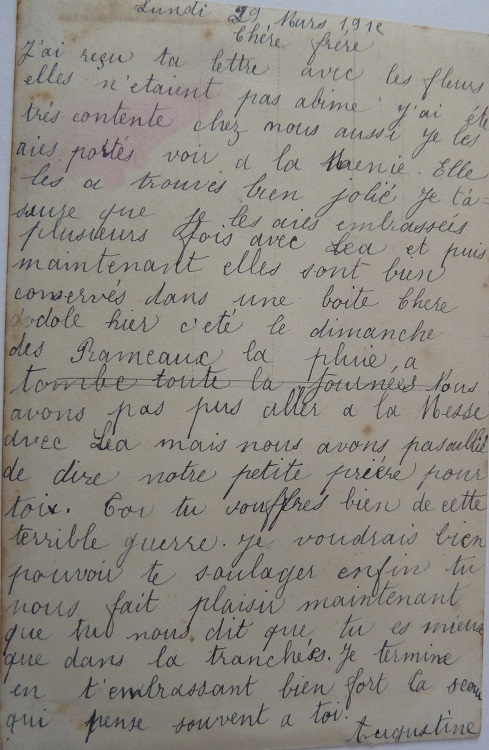 Lundi 29 Mars 191
Chère frère
J'ai reçu ta lettre avec les fleurs
elles n'etaient pas abimé j'ai été
trés contente chez nous aussi je les
aies portés voir a la Maenie. Elle
les a trouvés bien jolié je t'a=
ssure que je les aies embrassées
plusieurs fois avec Léa et puis
maintenant elles sont bien
conservés dans une boite Chere
dodole hier c'eté le dimanche
des Rameaux la pluie a
tombe toute la journées Nous
avons pas pus aller a la Messe
avec Léa mais nous avons pas oublié
de dire notre petite prière pour
toix. Toi tu souffres bien de cette
terrible guerre. je voudrais bien
pouvoir te soulager enfin tu
nous fait plaisir maintenant
que tu nous dit que tu es mieux
que dans la tranchées. Je termine
en t'embrassant bien fort ta sœur
qui pense souvent a toi.
Augustine